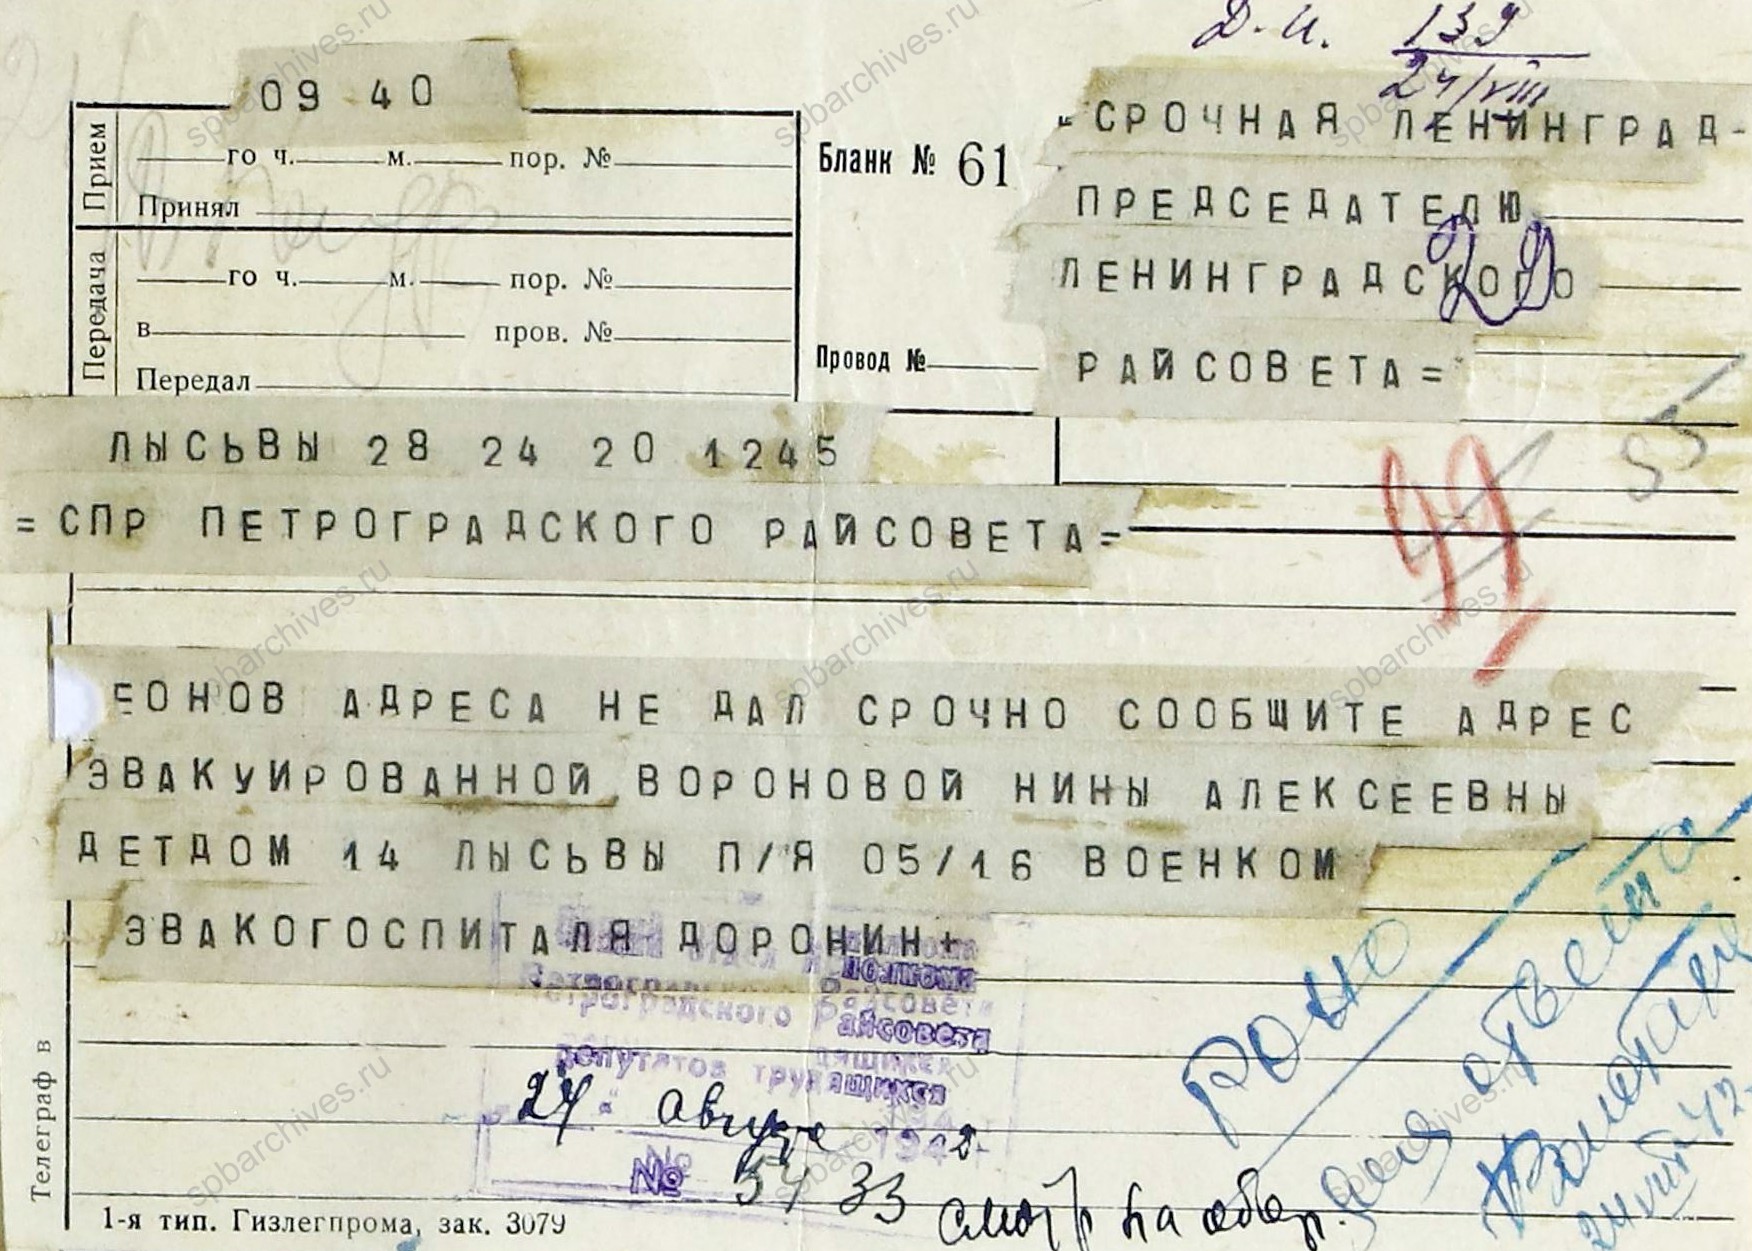 Д.И. 139
24/VIII
09 40
Прием
го ч. м. пор. №
Принял
Передача
го ч. м. пор. №
в пров. №
Передал
Бланк № 61
Провод №
СРОЧНАЯ ЛЕНИНГРАД-
ПРЕДСЕДАТЕЛЮ
ЛЕНИНГРАДСКОГО
РАЙСОВЕТА=
22
ЛЫСЬВЫ 28 24 20 1245
=СПР ПЕТРОГРАДСКОГО РАЙСОВЕТА=
99
55
ЕОНОВ АДРЕСА НЕ ДАЛ СРОЧНО СООБЩИТЕ АДРЕС
ЭВАКУИРОВАННОЙ ВОРОНОВОЙ НИНЫ АЛЕКСЕЕВНЫ
ДЕТДОМ 14 ЛЫСЬВЫ П/Я 05/16 ВОЕНКОМ
ЭВАКОГОСПИТАЛЯ ДОРОНИН+
Петроградского Райсовета
депутатов трудящихся
24 августа 1942
№ 5433
смотр на обор.
РОНО
для ответа
Телеграф в
1-я тип. Гизлегпрома, зак. 3079
spbarchives.ru